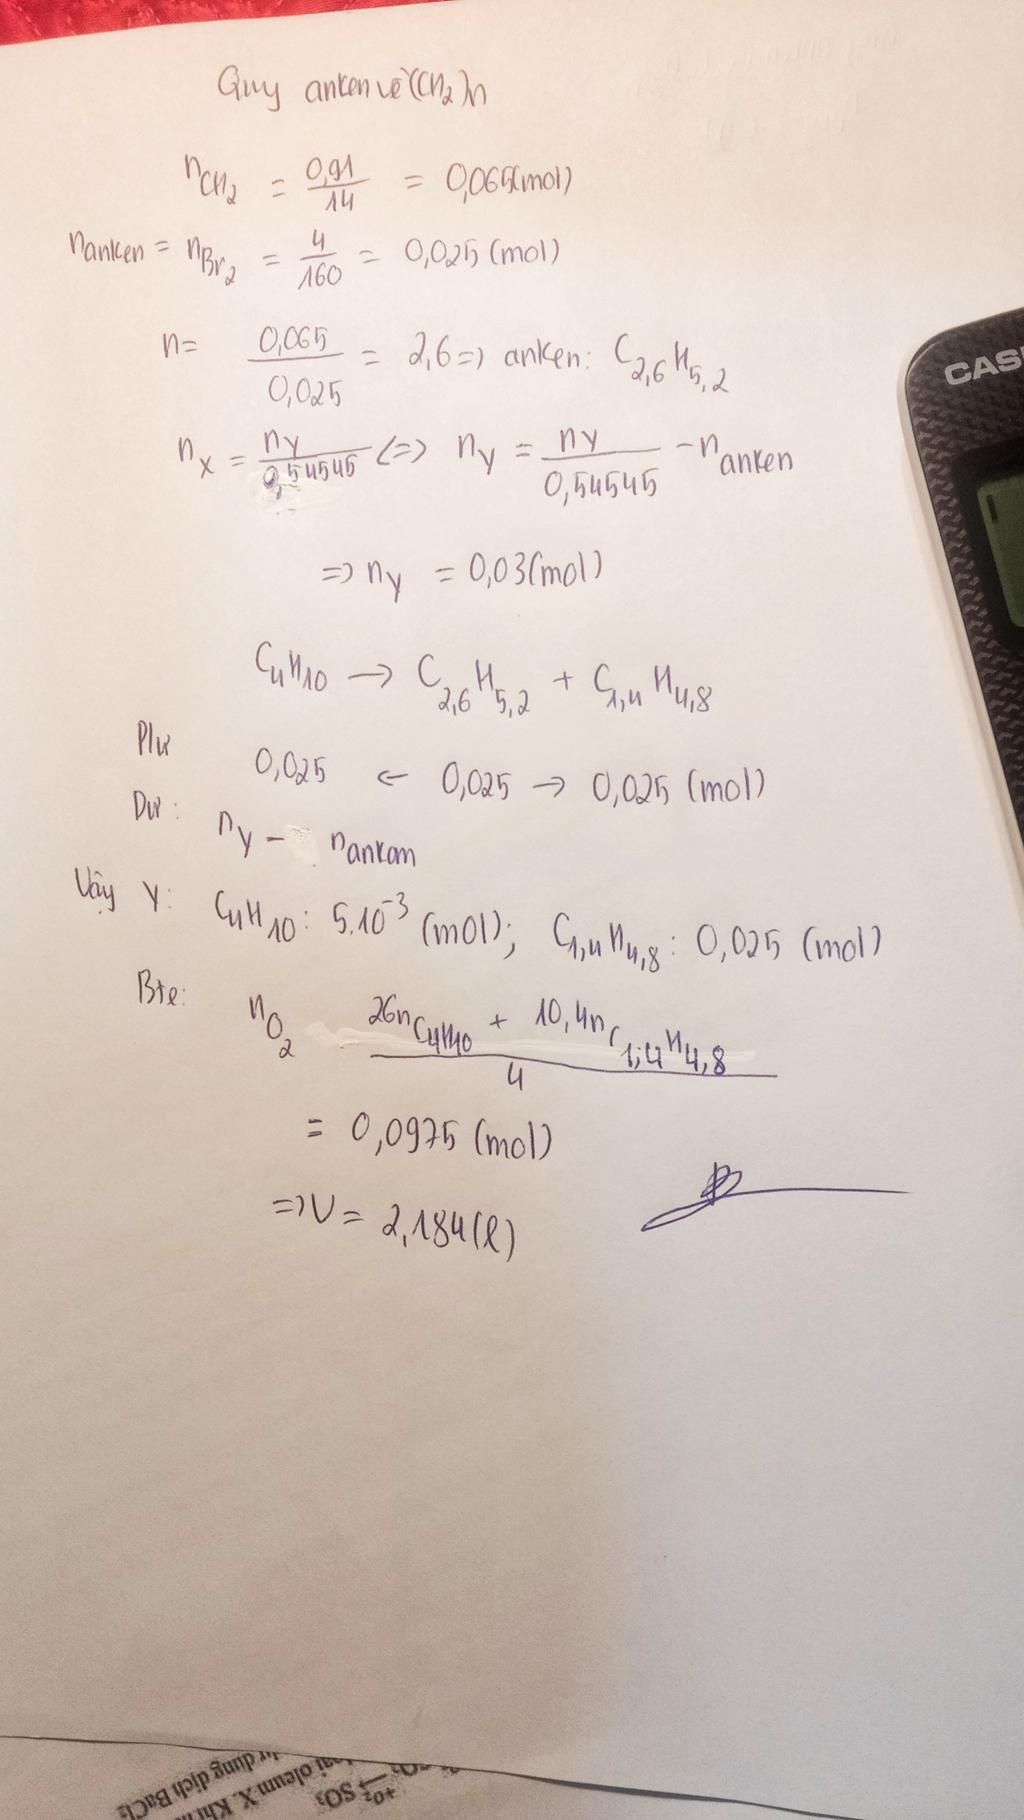 Quy anken về (CH2)n
nCH2 = 0,91/14 = 0,065(mol)
nanken = nBr2 = 4/160 = 0,025 (mol)
n= 0,065/0,025 = 2,6 => anken: C2,6H5,2
nX = nY/0,54545 <=> nY = nY/0,54545 - nanken
=> nY = 0,03(mol)
C4H10 → C2,6H5,2 + C1,4H4,8
Pư 0,025 ← 0,025 → 0,025 (mol)
Dư: nY - nankan
Vậy Y: C4H10: 5.10^-3 (mol); C1,4H4,8: 0,025 (mol)
Bte: nO2 26nC4H10 + 10,4nC1,4H4,8 / 4
= 0,0975 (mol)
=> V = 2,184(l)
CAS
SO3
+O2
oleum X. Kh
dung dịch BaCl